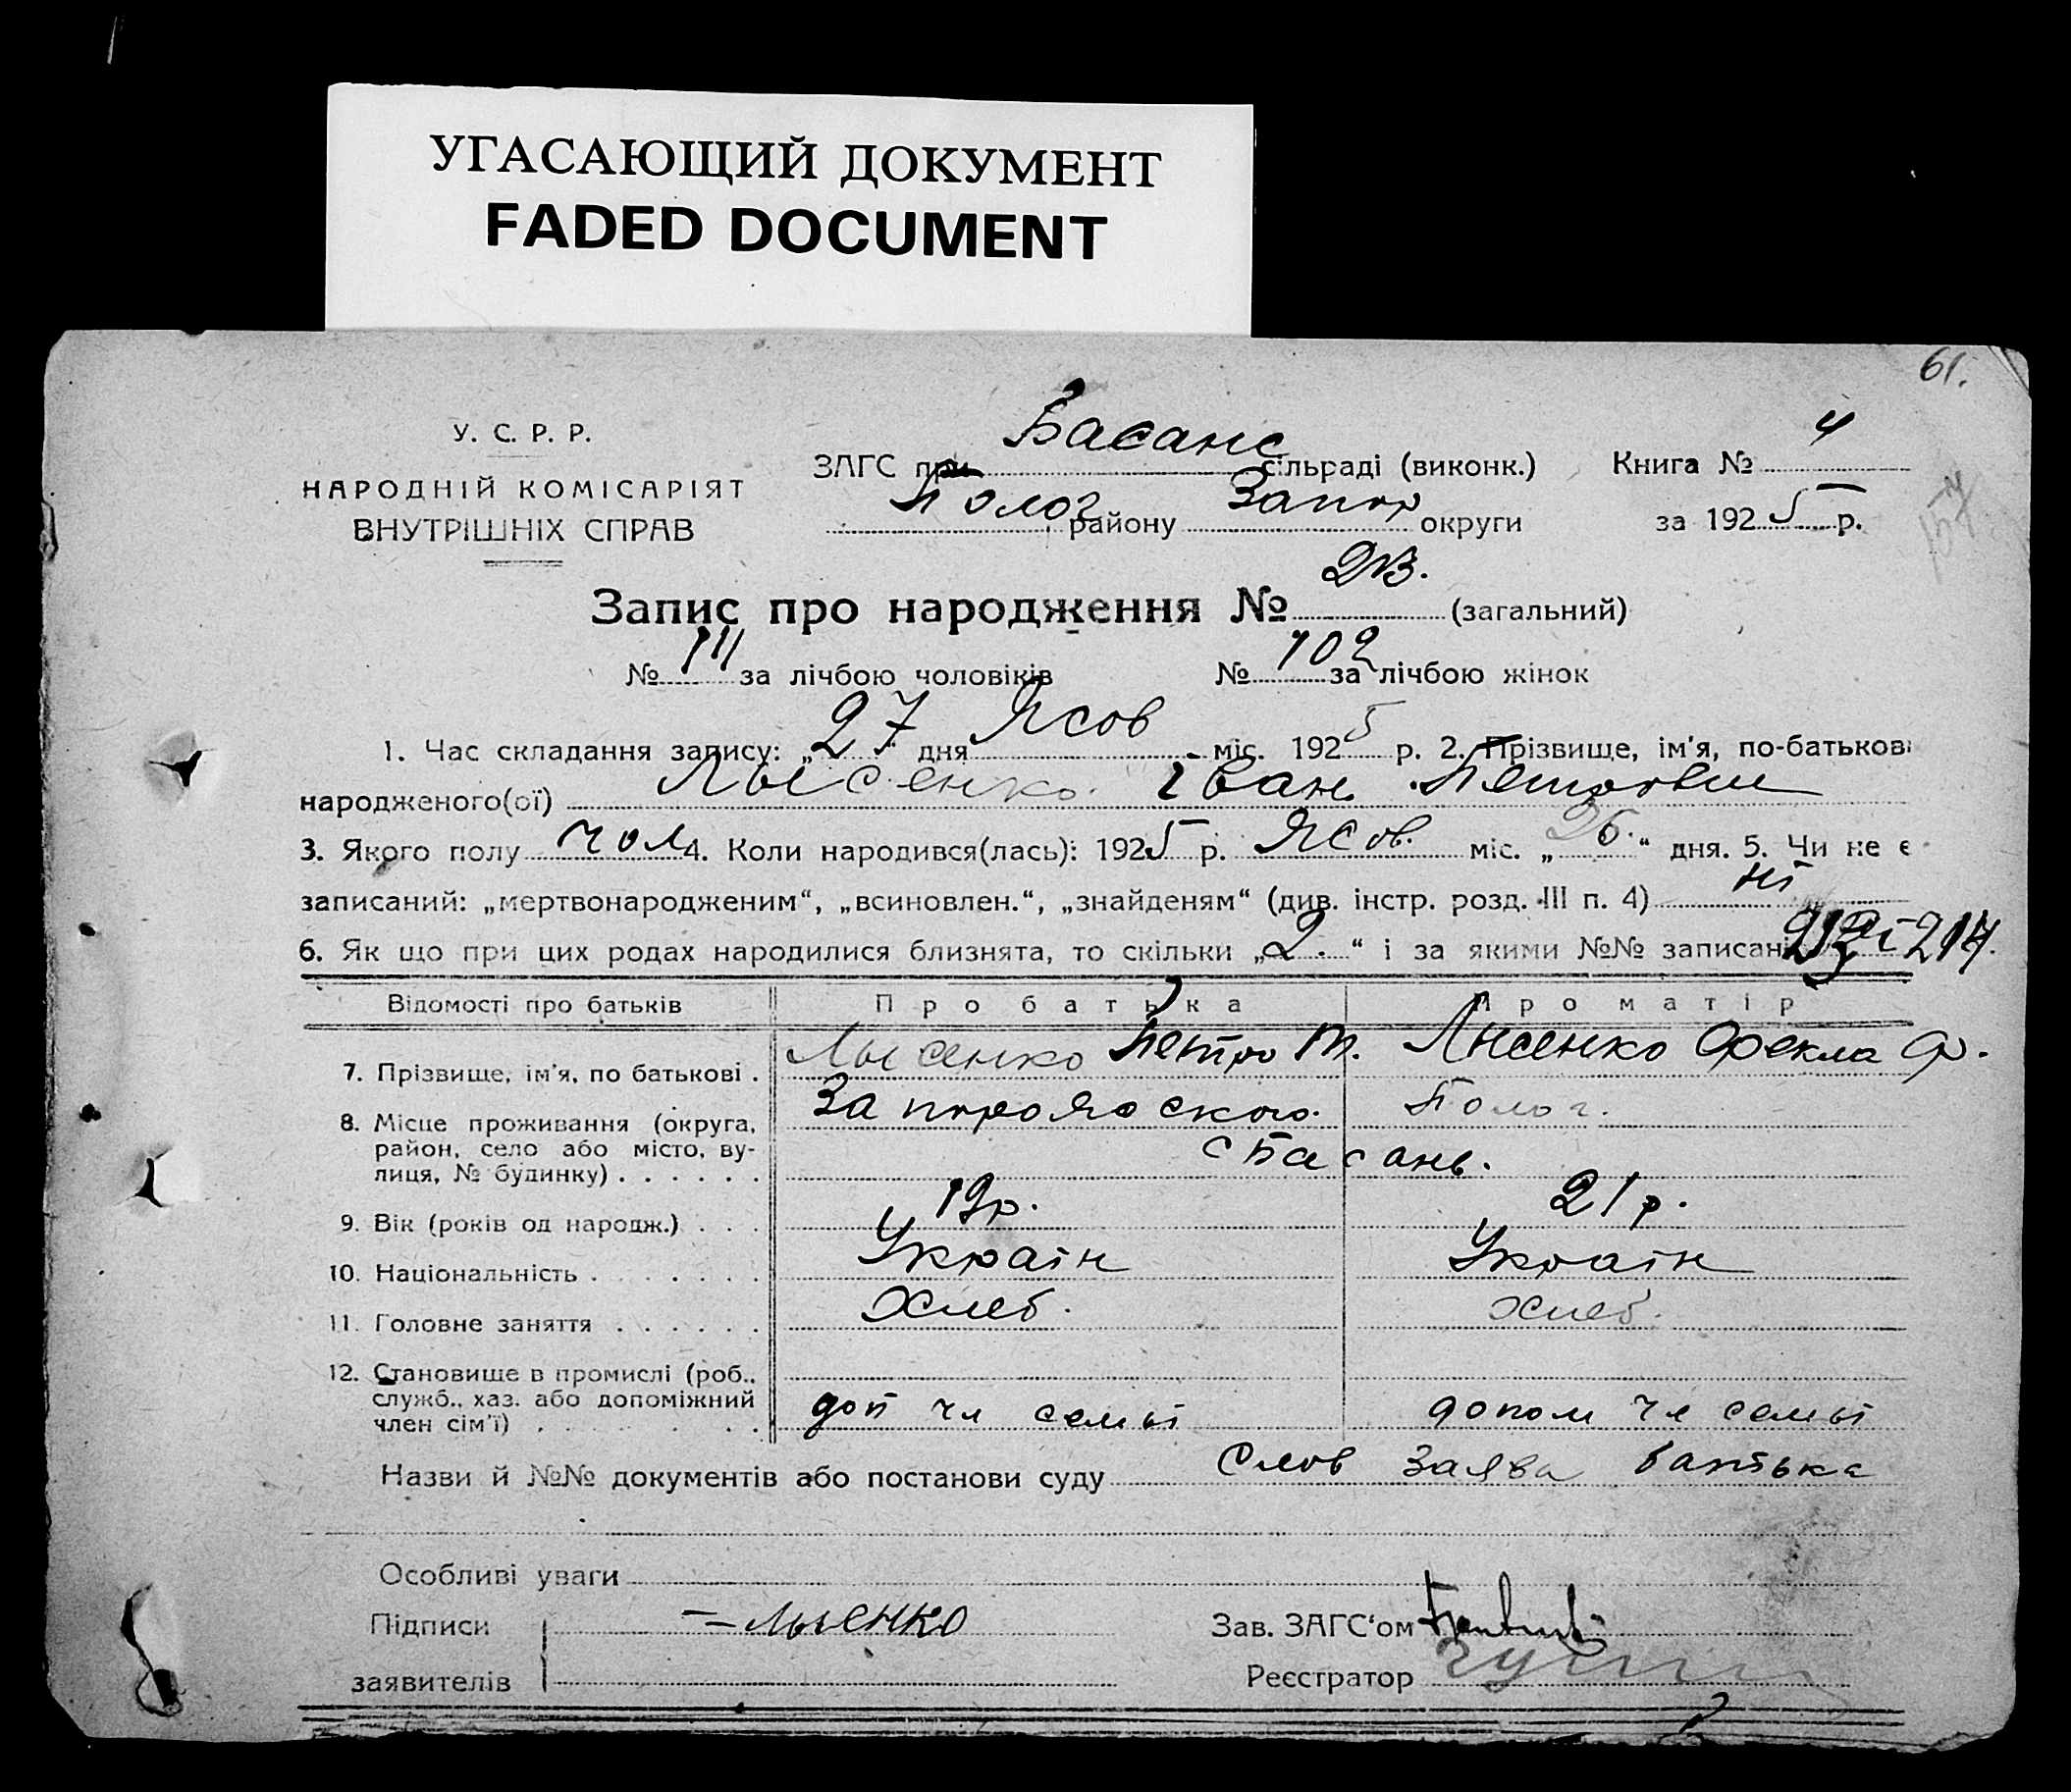 УГАСАЮЩИЙ ДОКУМЕНТ
FADED DOCUMENT
61.
У. С. Р. Р.
НАРОДНІЙ КОМІСАРІЯТ
ВНУТРІШНІХ СПРАВ
ЗАГС при Басанс сільраді (виконк.) Книга № 4
Полог району Запор округи за 1925 р.
157
Запис про народження № 213. (загальний)
№ 111 за лічбою чоловіків № 102 за лічбою жінок
1. Час складання запису: „27“ дня Жов міс. 1925 р. 2. Прізвище, ім'я, по-батькові
народженого(ої) Лысенко Іван Петрович
3. Якого полу чол 4. Коли народився(лась): 1925 р. Жов. міс. „26.“ дня. 5. Чи не є
записаний: „мертвонародженим“, „всиновлен.“, „знайденям“ (див. інстр. розд. III п. 4) ні
6. Як що при цих родах народилися близнята, то скільки „2.“ і за якими №№ записані 213 і 214.
Відомості про батьків Про батька Про матір
7. Прізвище, ім'я, по батькові . Лысенко Петро Т. Лисенко Фекла Ф.
8. Місце проживання (округа, Запорожского Полог.
район, село або місто, ву- с Басань.
лиця, № будинку) . . . . . .
9. Вік (років од народж.) . . . 19р. 21р.
10. Національність . . . . . . . Україн Україн
11. Головне заняття . . . . . . Хлеб. Хлеб.
12. Становище в промислі (роб.,
служб., хаз. або допоміжний доп чл семьі допом чл семьі
член сім'ї) . . . . .
Назви й №№ документів або постанови суду Слов заява батька
Особливі уваги
Підписи Лысенко Зав. ЗАГС'ом
заявителів Реєстратор